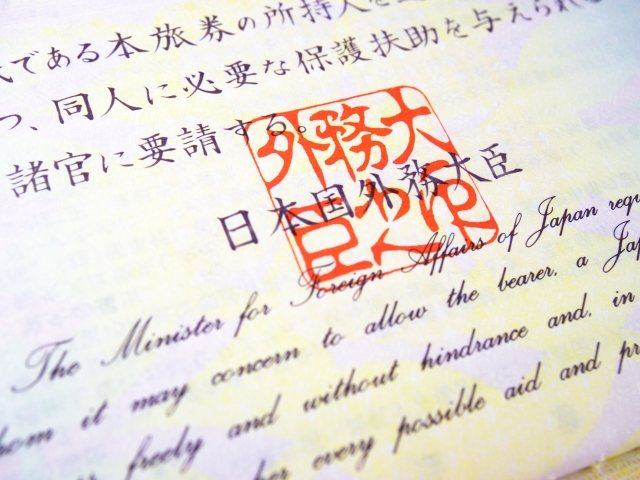 である本旅券の所持人を
つ、同人に必要な保護扶助を与えられる
諸官に要請する。
外務大
日本国外務大臣
The Minister for Foreign Affairs of Japan requ
hom it may concern to allow the bearer, a Jap
freely and without hindrance and, in
her every possible aid and pr